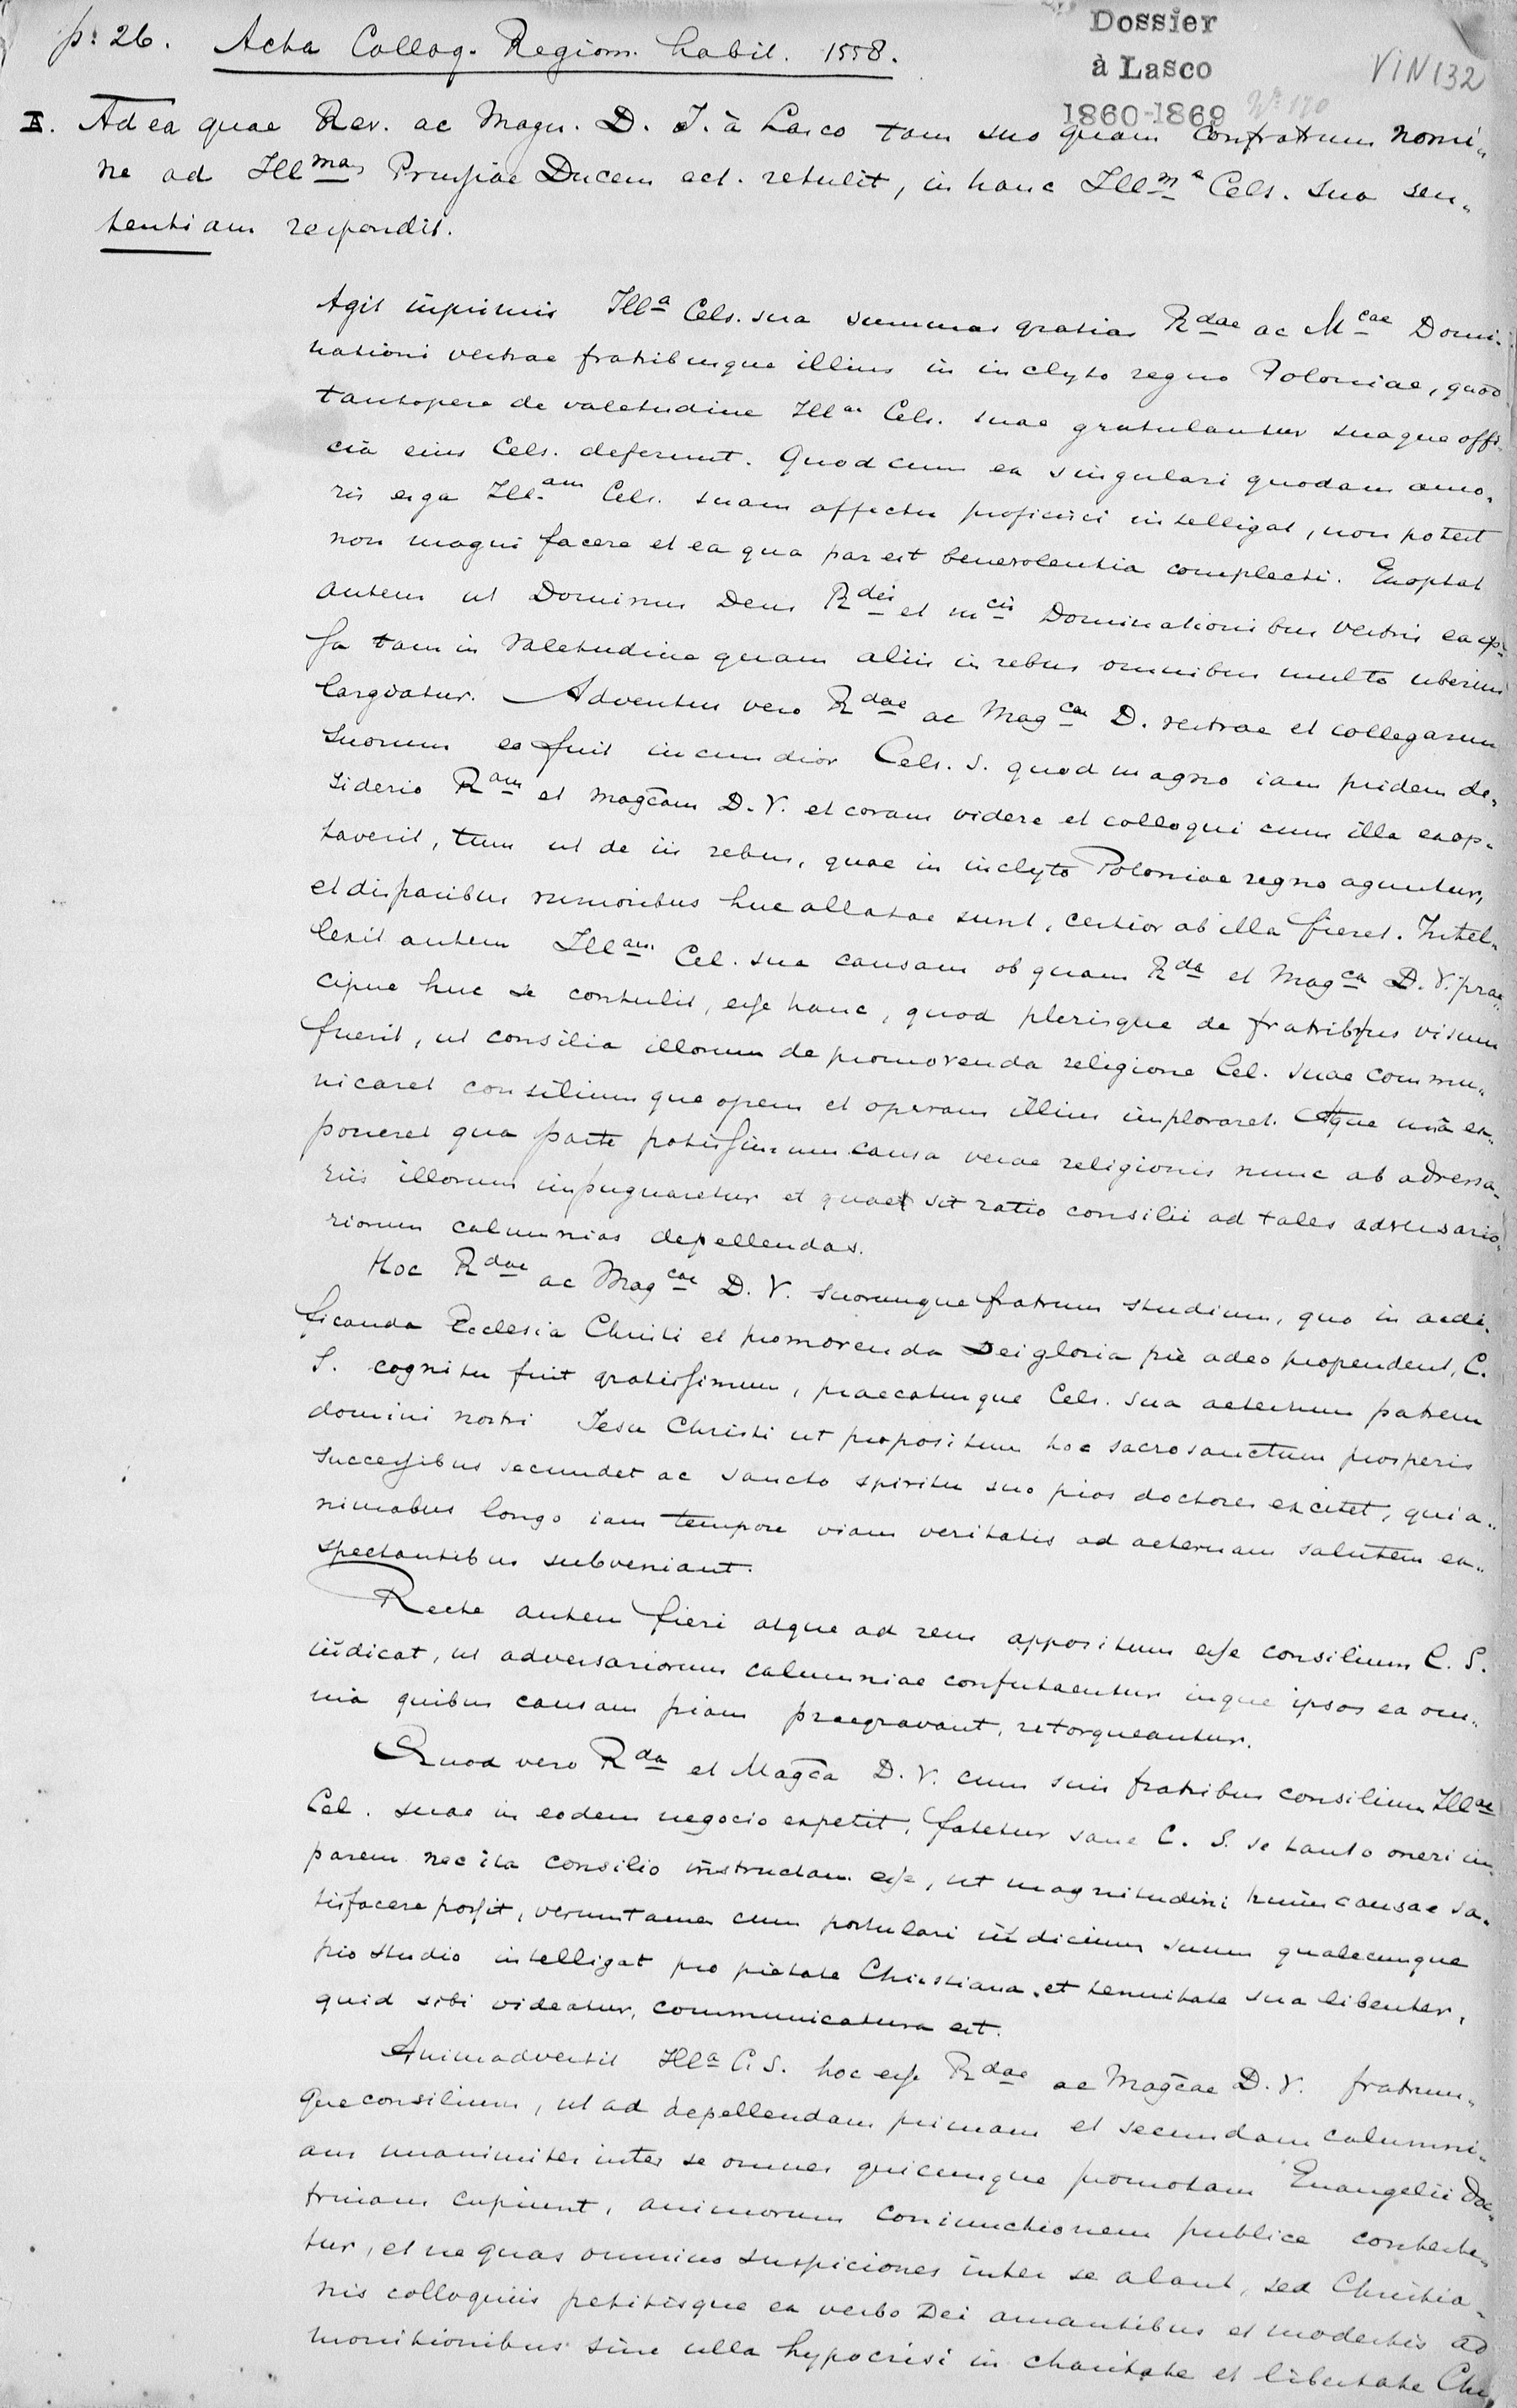 Dossier
à Lasco
1860-1869
VIN 132
Nº 170
p. 26. Acta Colloq. Regiom. habit. 1558.
II. Ad ea quae Rev. ac Magn. D. J. à Lasco tam suo quam confratrum nomi„
ne ad Illmas Prussiae Ducem ect. retulit, in hanc Illma Cels. sua sen„
tentiam respondit.
Agit inprimis Illa Cels. sua summas gratias Rdae ac Mcae Domi„
nationi vestrae fratribusque illius in inclyto regno Poloniae, quod
tantopere de valetudine Illae Cels. suae gratulantur suaque offi„
cia eius Cels. deferunt. Quod cum ex singulari quodam amo„
ris erga Illam Cels. suam affectu proficisci intelligat, non potest
non magni facere et ea qua par est benevolentia complecti. Exoptat
autem ut Dominus Deus Rdis et mcis Dominationibus vestris eaip„
sa tam in valetudine quam aliis in rebus omnibus multo uberius
largiatur. Adventus vero Rdae ac Magcae D. vestrae et collegarum
suorum eo fuit iucundior Cels. S. quod magno iam pridem de„
siderio Ram et magcam D. V. et coram videre et colloqui cum illa exop„
taverit, tum ut de iis rebus, quae in inclyto Poloniae regno aguntur,
et disparibus rumoribus huc allatae sunt, certior ab illa fieret. Intel„
lexit autem Illam Cel. sua causam ob quam Rda et Magca D. V. prae„
cipue huc se contulit, esse hanc, quod plerisque de fratribus visum
fuerit, ut consilia illorum de promovenda religione Cel. suae commu„
nicaret consiliumque opem et operam illius imploraret. Atque unà ex„
poneret qua parte potissimum causa verae religionis nunc ab adversa„
riis illorum impugnaretur et quae sit ratio consilii ad tales adversario„
riorum calumnias depellendas.
Hoc Rdae ac Magcae D. V. suorumque fratrum studium, quo in aedi„
ficanda Ecclesia Christi et promovenda Dei gloria piè adeo propendent, C.
S. cognitu fuit gratissimum, praecaturque Cels. sua aeternum patrem
domini nostri Jesu Christi ut propositum hoc sacrosanctum prosperis
successibus secundet ac sancto spiritu suo pios doctores excitet, qui a„
nimabus longo iam tempore viam veritatis ad aeternam salutem ex„
spectantibus subveniant.
Recte autem fieri atque ad rem appositum esse consilium C. S.
iudicat, ut adversariorum calumniae confutaentur inque ipsos ea om„
nia quibus causam piam praegravant, retorqueantur.
Quod vero Rda et Magca D. V. cum suis fratribus consilium Illae
Cel. suae in eodem negocio expetit, fatetur sane C. S. se tanto oneri im„
parem nec ita consilio instructam esse, ut magnitudini huius causae sa„
tisfacere possit, veruntamen cum postulari iudicium suum qualecunque
pio studio intelligat pro pietate Christiana et tenuitate sua libenter,
quid sibi videatur, communicatura est.
Animadvertit Illa C. S. hoc esse Rdae ac Magcae D. V. fratrum„
que consilium, ut ad depellendam primam et secundam calumni„
am unanimiter inter se omnes quicunque promotam Euangelii doc„
trinam cupiunt, animorum coniunctionem publice contesten„
tur, et ne quas omnino suspiciones inter se alant, sed Christia„
nis colloquiis petitisque ex verbo Dei amantibus et modestis ad
monitionibus sine ulla hypocrisi in charitate et libertate Chr„